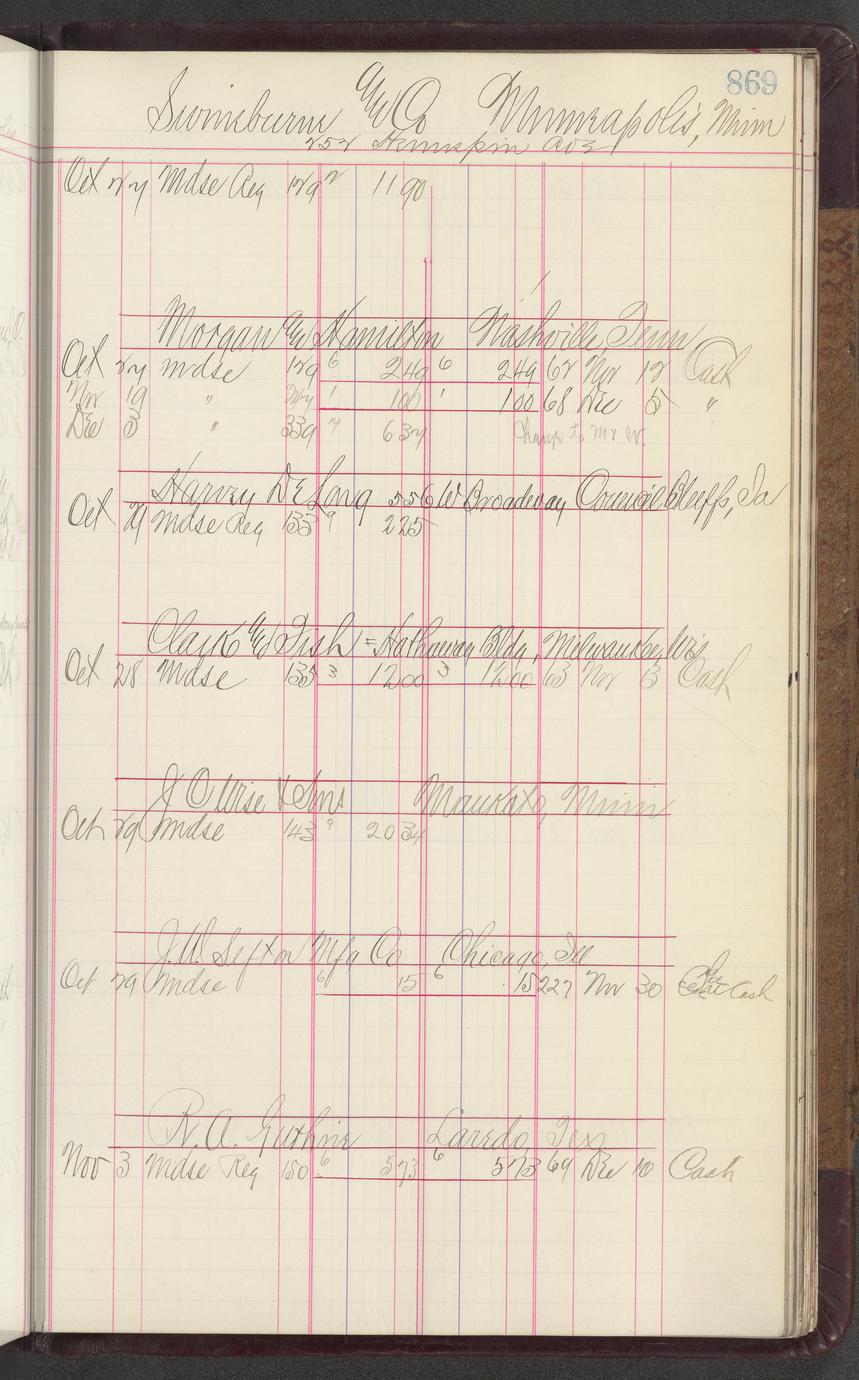 869
Swinburne & Co Minneapolis, Minn
252 Hennepin Ave
Oct 27 Mdse Reg 129 2 11 90
Morgan & Hamilton Nashville, Tenn
Oct 27 Mdse 129 6 2 49 6 2 49 62 Nov 12 Cash
Nov 19 " 227 1 1 00 1 1 00 68 Dec 5 "
Dec 3 " 339 7 6 37 Charge to Mr W.
Harvey DeLong 556 W Broadway Council Bluffs, Ia
Oct 29 Mdse Reg 133 9 2 25
Clark & Fish = Hathaway Bldg, Milwaukee, Wis
Oct 28 Mdse 135 3 12 00 3 12 00 63 Nov 13 Cash
J O Wise & Sons Mankato, Minn
Oct 29 Mdse 143 9 20 34
J. W. Sefton Mfg Co Chicago, Ill
Oct 29 Mdse 6 15 6 15 227 Nov 30 Cash
R. A. Guthrie Laredo Tex
Nov 3 Mdse Reg 150 6 5 73 6 5 73 69 Dec 10 Cash